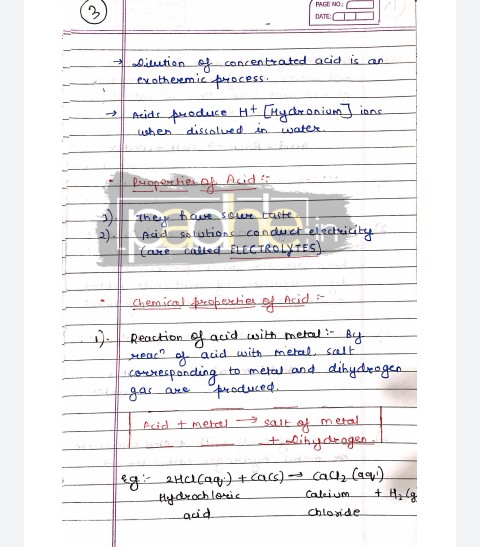 3
PAGE NO.:
DATE:
→ Dilution of concentrated acid is an
exothermic process.
→ Acids produce H+ [Hydronium] ions
when dissolved in water.
• Properties of Acid :-
1). They have sour taste
2). Acid solutions conduct electricity
(are called ELECTROLYTES)
• Chemical properties of Acid :-
1). Reaction of acid with metal :- By
reacⁿ of acid with metal, salt
corresponding to metal and dihydrogen
gas are produced.
Acid + metal → salt of metal
+ Dihydrogen.
eg:- 2HCl(aq.) + Ca(s) → CaCl2 (aq.)
Hydrochloric Calcium + H2(g
acid Chloride